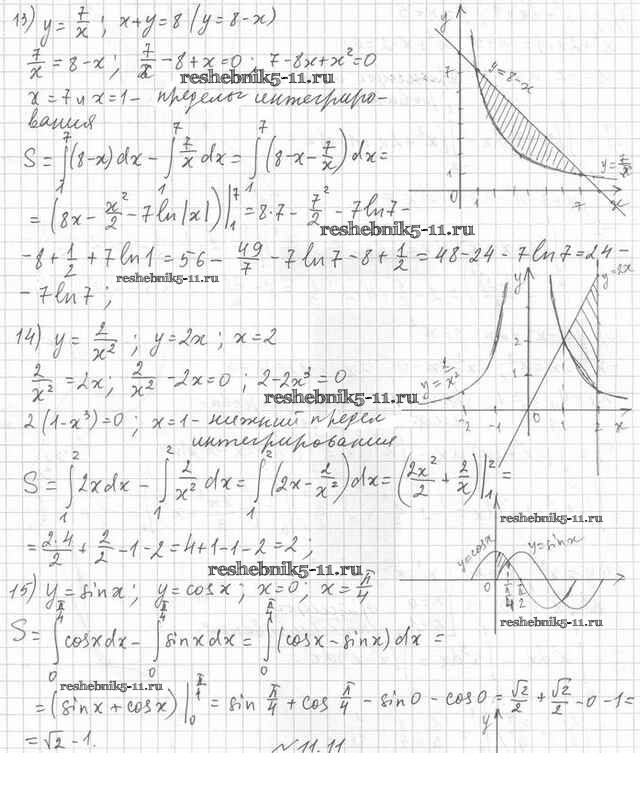 13) y = 7/x ; x+y=8 (y=8-x)
7/x = 8-x ; 7/x - 8+x=0 ; 7-8x+x²=0
reshebnik5-11.ru
x=7 и x=1 - пределы интегриро-
вания
S = ∫₁⁷ (8-x)dx - ∫₁⁷ 7/x dx = ∫₁⁷ (8-x-7/x) dx =
= (8x - x²/2 - 7ln|x|) |₁⁷ = 8·7 - 7²/2 - 7ln7 -
reshebnik5-11.ru
-8+1/2+7ln1=56-49/7-7ln7-8+1/2=48-24-7ln7=24-
reshebnik5-11.ru
-7ln7;
y
7
y=8-x
y=7/x
1
0
1
7
x
14) y = 2/x² ; y=2x ; x=2
2/x² = 2x; 2/x² - 2x=0 ; 2-2x³=0
reshebnik5-11.ru
2(1-x³)=0 ; x=1 - нижний предел
интегрирования
S = ∫₁² 2xdx - ∫₁² 2/x² dx = ∫₁² (2x - 2/x²)dx = (2x²/2 + 2/x) |₁² =
= 2·4/2 + 2/2 - 1 - 2 = 4+1-1-2=2 ;
y
y=2x
2
1
-2
-1
0
1
2
x
reshebnik5-11.ru
15) y=sinx; y=cosx; x=0; x=π/4
S = ∫₀^π/4 cosxdx - ∫₀^π/4 sinxdx = ∫₀^π/4 (cosx-sinx)dx =
reshebnik5-11.ru
= (sinx+cosx) |₀^π/4 = sin π/4 + cos π/4 - sin0 - cos0 = √2/2 + √2/2 - 0 - 1 =
reshebnik5-11.ru
= √2 - 1.
reshebnik5-11.ru
y=cosx
y=sinx
0
π/4
π/2
y
№11.11